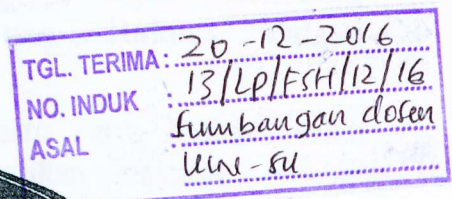 TGL. TERIMA : 20-12-2016
NO. INDUK : 13/LP/FSH/12/16
ASAL Sumbangan dosen
UIN-SU